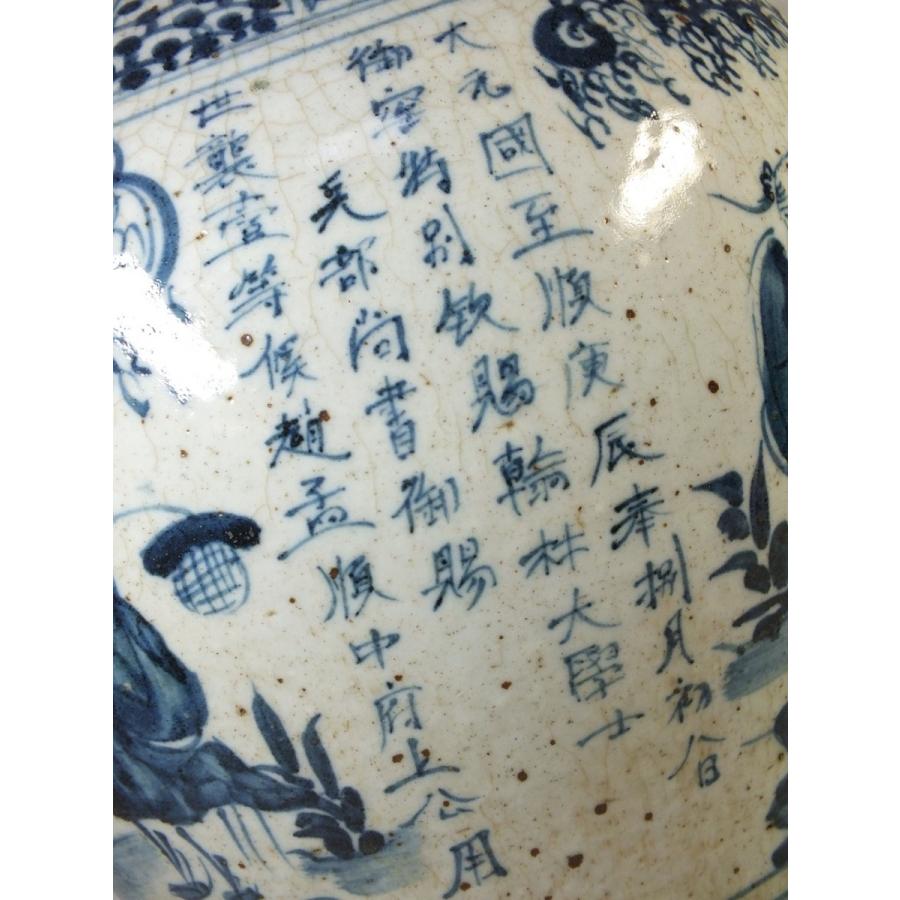 大元國至順庚辰奉捌月初八日
御窑特別欽賜翰林大學士
兵部尚書御賜
世襲壹等候趙孟順中府上公用